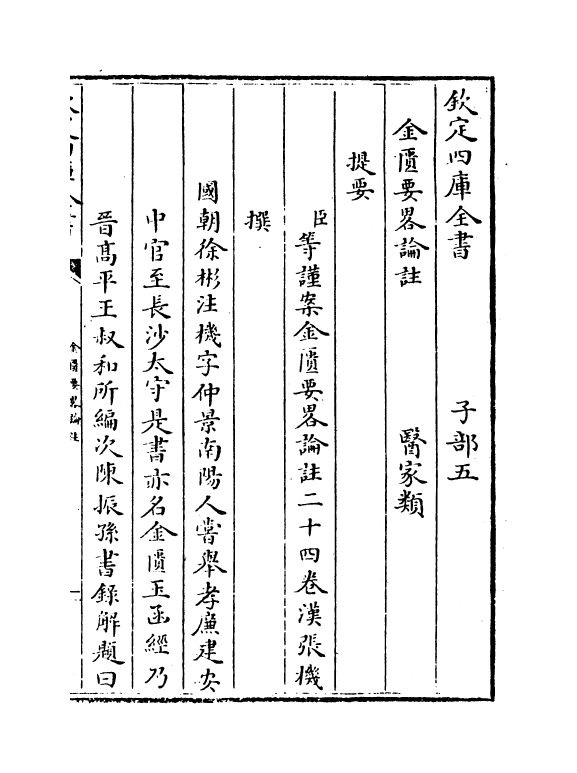 欽定四庫全書　子部五
金匱要畧論註　醫家類
提要
臣等謹案金匱要畧論註二十四卷漢張機
撰
國朝徐彬注機字仲景南陽人嘗舉孝廉建安
中官至長沙太守是書亦名金匱玉函經乃
晉髙平王叔和所編次陳振孫書錄解題曰
金匱要畧論註
一